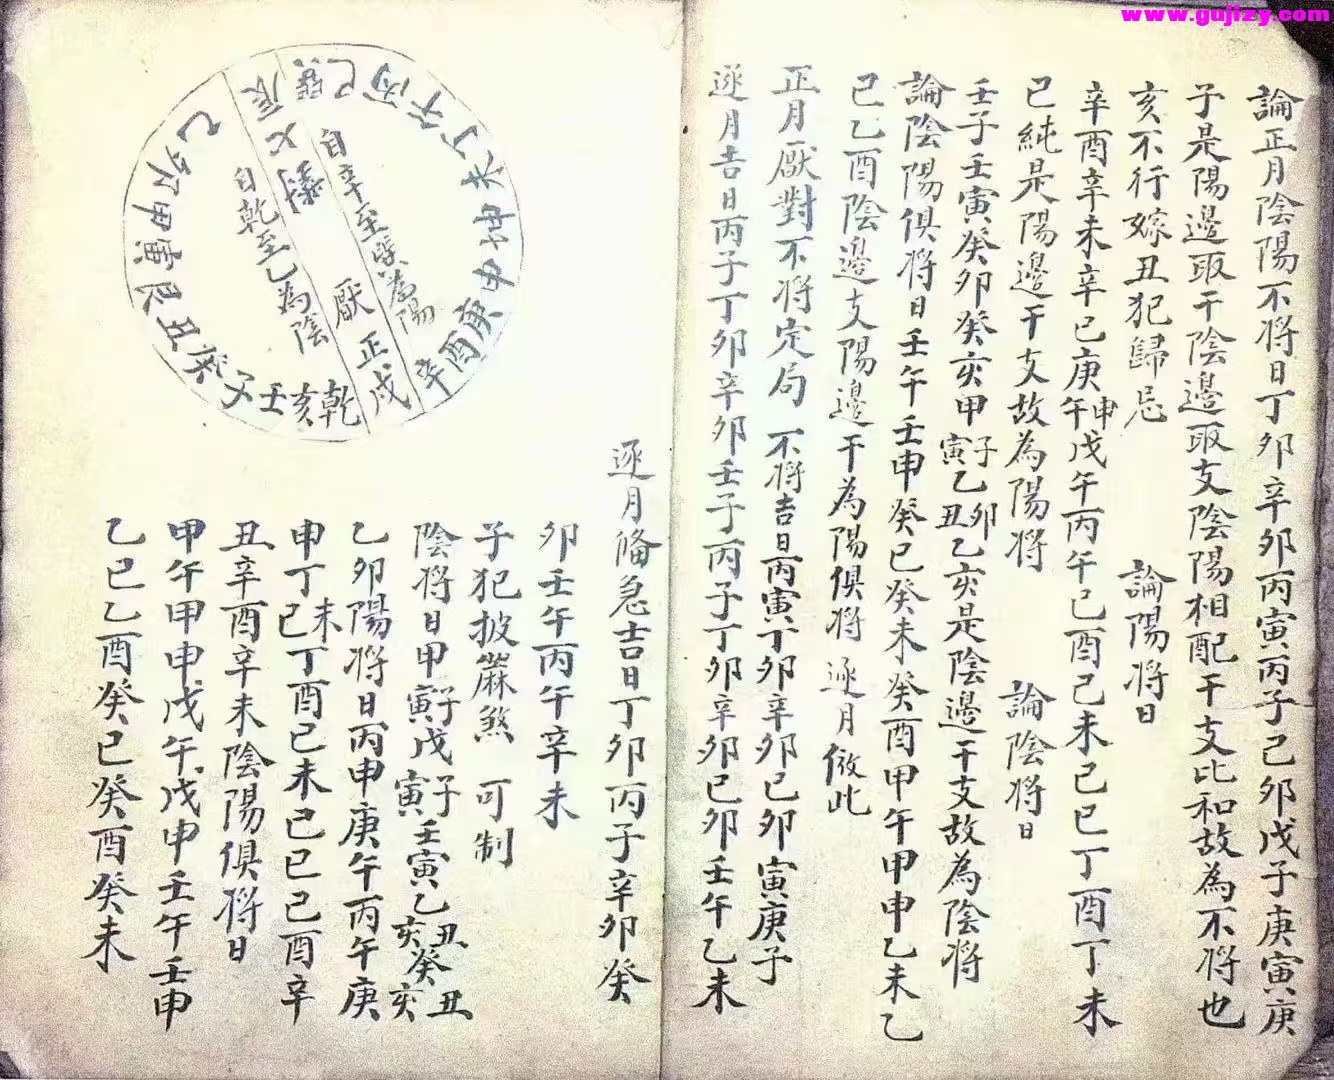 www.gujizy.com
論正月陰陽不将日丁夘辛夘丙寅丙子己夘戊子庚寅庚
子是陽邊取干陰邊取支陰陽相配干支比和故為不将也
亥不行嫁丑犯歸忌
論陽将日
辛酉辛未辛巳庚午申戊午丙午己酉己未己巳丁酉丁未
已純是陽邊干支故為陽将
論陰将日
壬子壬寅癸夘癸亥甲寅子乙丑夘乙亥是陰邊干支故為陰将
論陰陽俱将日壬午壬申癸巳癸未癸酉甲午甲申乙未乙
巳乙酉陰邊支陽邊干為陽俱将 逐月倣此
正月厭對不将定局 不将吉日丙寅丁夘辛夘己夘寅庚子
逐月吉日丙子丁夘辛夘壬子丙子丁夘辛夘己夘壬午乙未
逐月俻急吉日丁夘丙子辛夘癸
夘壬午丙午辛未
子犯披蔴煞 可制
陰将日甲寅子戊寅子壬寅乙亥丑癸亥丑
乙夘陽将日丙申庚午丙午庚
申丁巳未丁酉己未己巳己酉辛
丑辛酉辛未陰陽俱将日
甲午甲申戊午戊申壬午壬申
乙巳乙酉癸巳癸酉癸未
乙夘甲寅艮丑癸子壬亥乾戌辛酉庚申坤未丁午丙巳巽辰
自辛至巽為陽
厭正
自乾至乙為陰